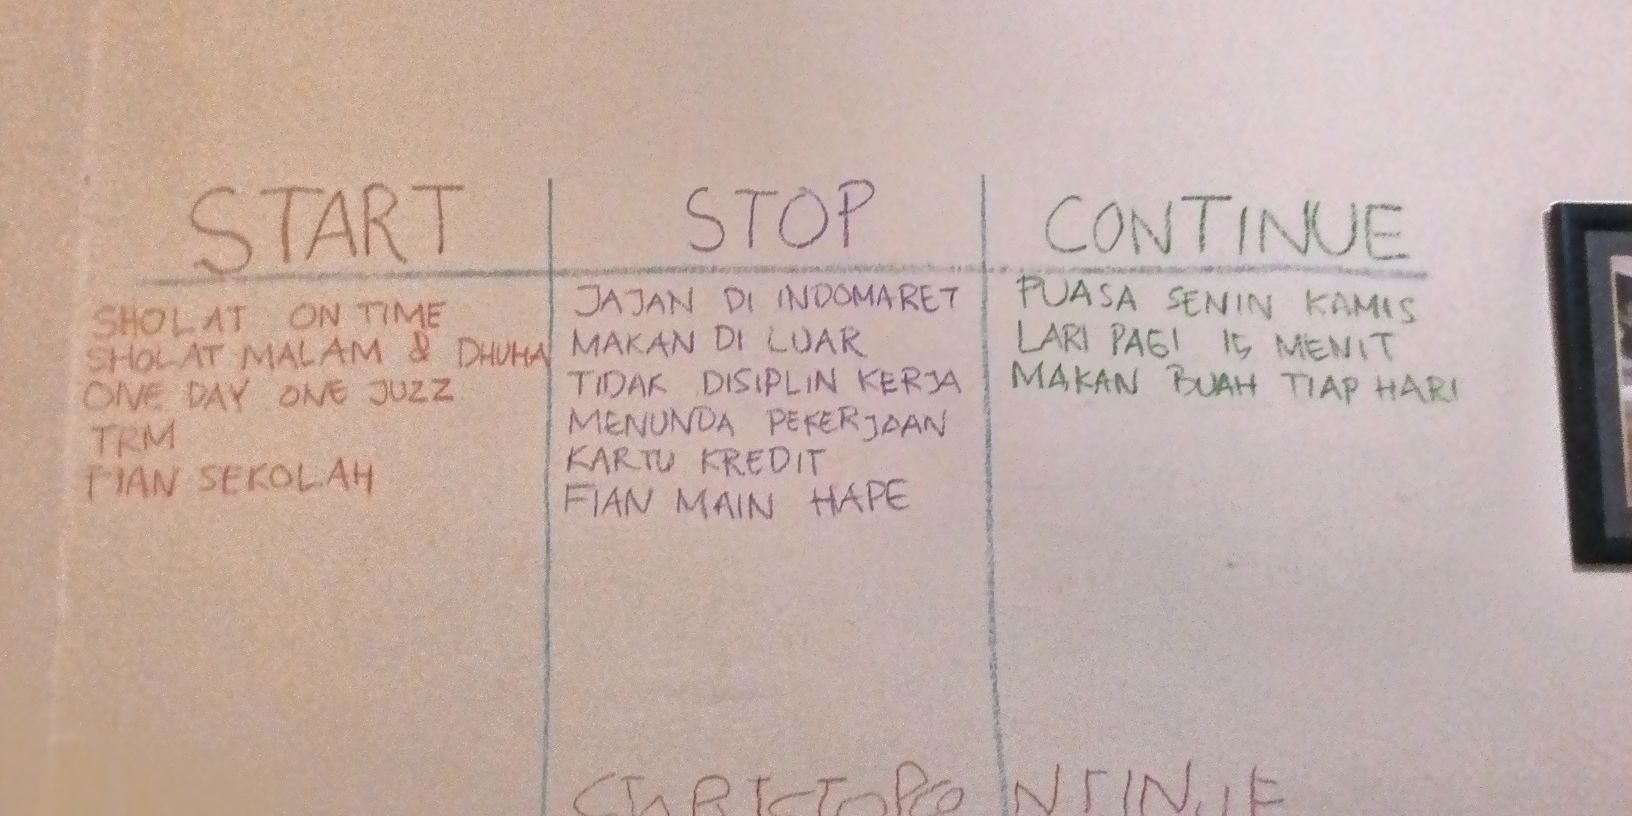 START
SHOLAT ON TIME
SHOLAT MALAM & DHUHA
ONE DAY ONE JUZZ
TRM
FIAN SEKOLAH
STOP
JAJAN DI INDOMARET
MAKAN DI LUAR
TIDAK DISIPLIN KERJA
MENUNDA PEKERJAAN
KARTU KREDIT
FIAN MAIN HAPE
CONTINUE
PUASA SENIN KAMIS
LARI PAGI 15 MENIT
MAKAN BUAH TIAP HARI